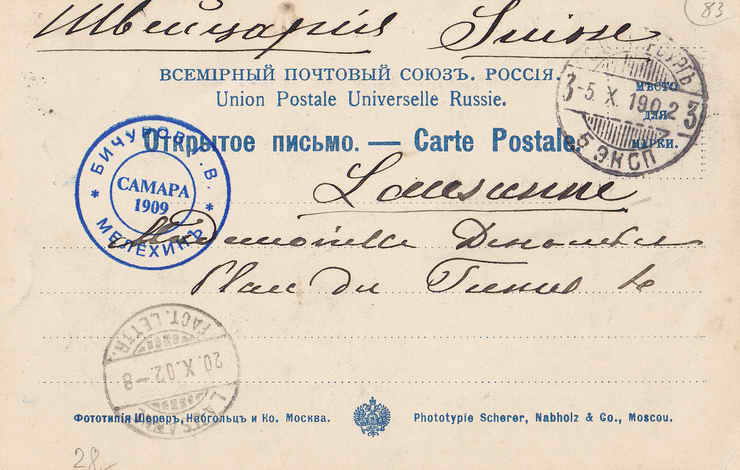 83
Швейцарія Suisse
ВСЕМІРНЫЙ ПОЧТОВЫЙ СОЮЗЪ. РОССІЯ.
Union Postale Universelle Russie.
МѢСТО
ДЛЯ
МАРКИ.
3 -5. X. 1902 3
5 ЭКСП
Открытое письмо. — Carte Postale.
БИЧУРОВ .В.
САМАРА
1909
* МЕЛЕХИНЪ *
Lausanne
Mademoiselle
du
FACT. LETTR.
20.X.02.-8
LAUSANNE
Фототипія Шереръ, Набгольцъ и Ко. Москва.
Phototypie Scherer, Nabholz & Co., Moscou.
28.-